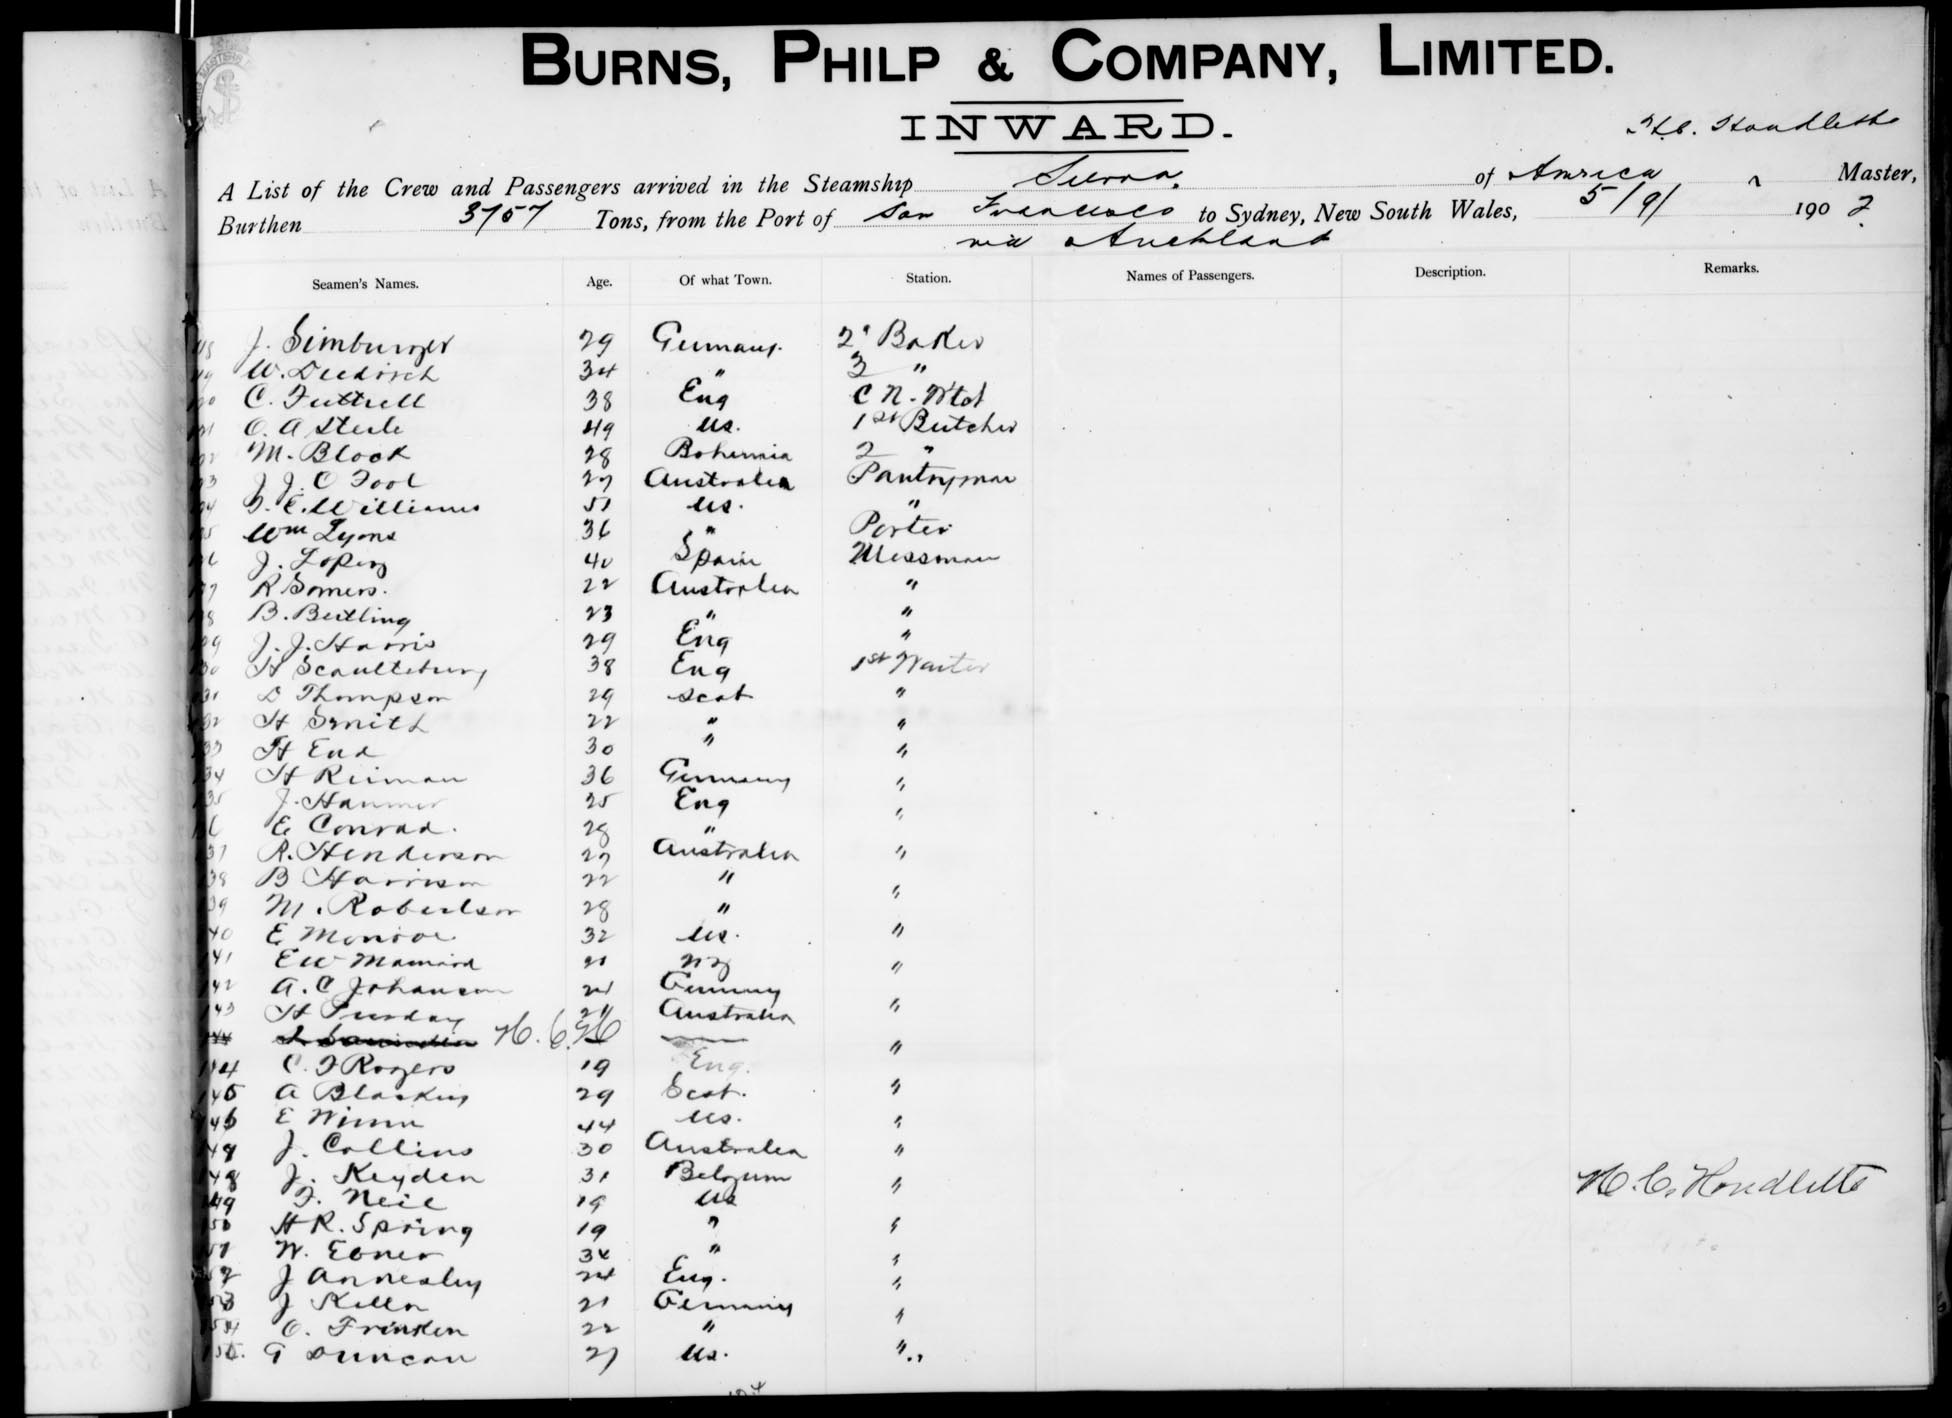 BURNS, PHILP & COMPANY, LIMITED.
INWARD.
A List of the Crew and Passengers arrived in the Steamship Sierra. of America Master,
Burthen 3757 Tons, from the Port of San Francisco to Sydney, New South Wales, 5/9/ 1902
via Auckland
Seamen's Names. Age. Of what Town. Station. Names of Passengers. Description. Remarks.
J. Simburger 29 Germany. 2d Baker
W. Diedrich 34 " 3 "
C. Futtrell 38 Eng C N. Wtch
C. A Steele 49 US. 1st Butcher
M. Block 28 Bohemia 2 "
J. J. O Fool 27 Australia Pantryman
E. Williams 51 US. "
Wm Lyons 36 " Porter
J. Lopez 40 Spain Messman
R Somers. 22 Australia "
B. Beitling 23 " "
J. J. Harris 29 Eng "
130 H Scaulteburg 38 Eng 1st Waiter
131 D Thompson 29 Scot "
132 H Smith 22 " "
133 H End 30 " "
134 H Reiman 36 Germany "
135 J. Hanmer 25 Eng "
E Conrad. 28 " "
137 R. Henderson 27 Australia "
138 B Harrison 22 " "
139 M. Robertson 28 " "
140 E Monroe 32 US. "
141 E W Mamard 21 NZ "
142 A. C Johanson 24 Germany "
143 H Purday 24 Australia "
H. C. H "
144 C. F Rogers 19 Eng. "
145 A Blaskey 29 Scot. "
146 E Winn 44 US. "
J. Collins 30 Australia "
148 J. Keyden 31 Belgium "
149 F. Neil 19 US "
150 H R. Spring 19 " "
151 W. Ebner 34 " "
152 J Annesley 24 Eng. "
153 J Keller 21 Germany "
154 O. Frinken 22 " "
155. G Duncan 27 US. "
H. C. Houdlette